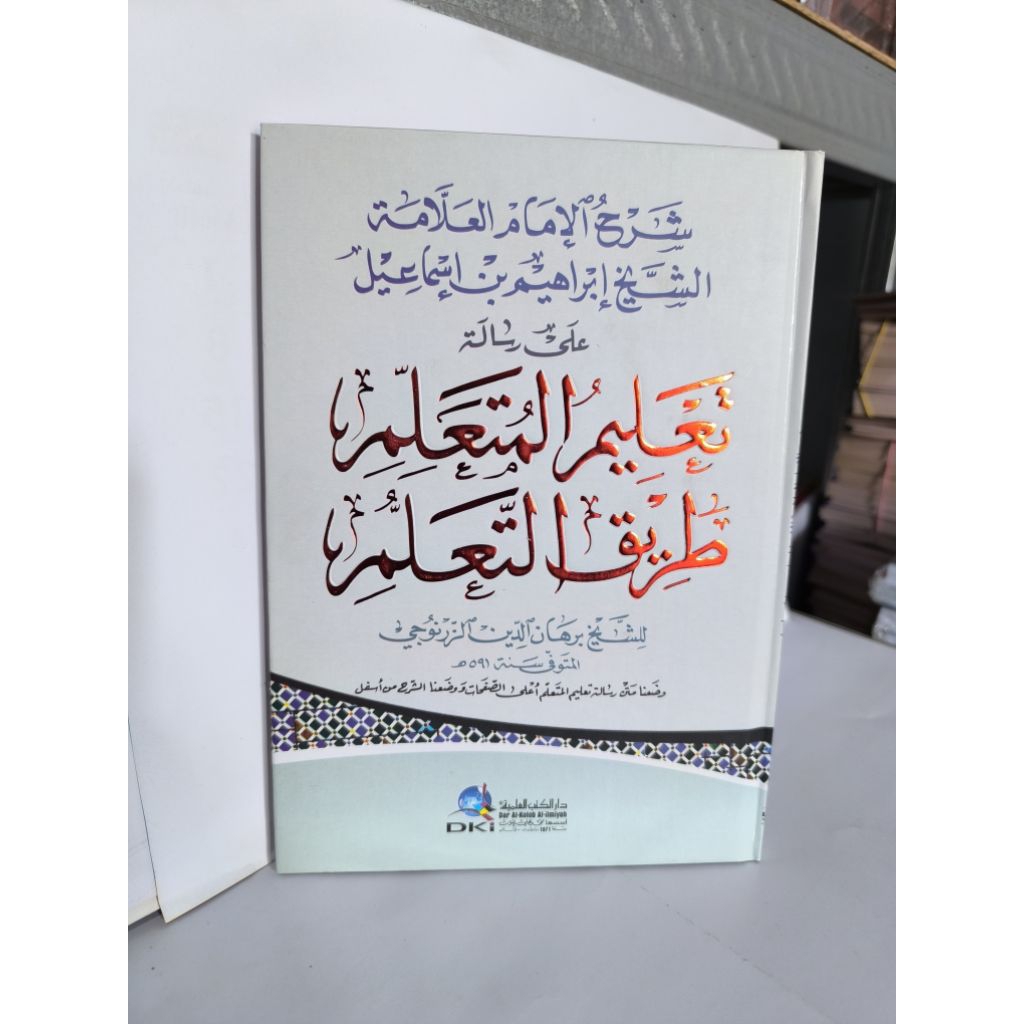 شَرْحُ الإِمَامِ العَلَّامَةِ
الشَّيْخِ إِبْرَاهِيْمَ بْنِ إِسْمَاعِيْلَ
عَلَى رِسَالَةِ
تَعْلِيمُ الْمُتَعَلِّمِ
طَرِيْقَ التَّعَلُّمِ
لِلشَّيْخِ بُرهَان الدِّين الزَّرْنُوجِي
المتوفى سنة ٥٩١ هـ
وضعنا متن رسالة تعليم المتعلم أعلى الصفحات ووضعنا الشرح من أسفل
دار الكتب العلمية
Dar Al-Kotob Al-ilmiyah
DKi